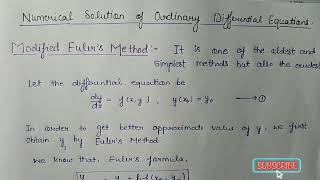 Numerical Solution of Ordinary Differential Equations.
Modified Euler's Method:- It is one of the oldest and
simplest methods but also the crudest
Let the differential equation be
dy/dx = f(x,y), y(x₀) = y₀ → ①
In order to get better approximate value of y, we first
obtain y₁ by Euler's Method
we know that, Euler's formula,
SUBSCRIBE